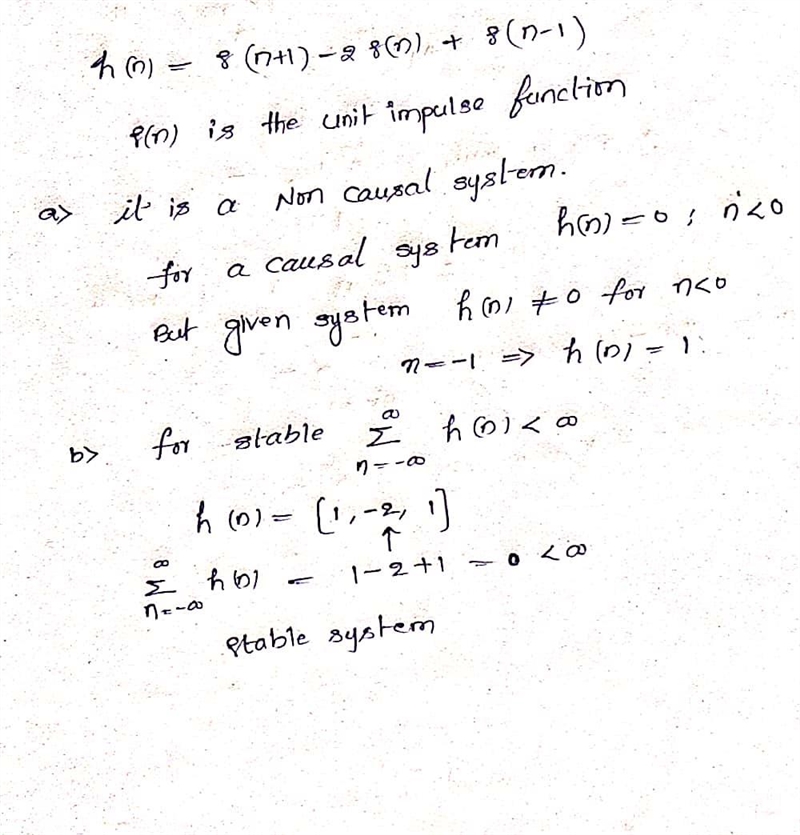 h(n) = δ(n+1) - 2 δ(n) + δ(n-1)
δ(n) is the unit impulse function
a> it is a Non causal system.
for a causal system h(n) = 0 ; n < 0
But given system h(n) ≠ 0 for n < 0
n = -1 ⇒ h(n) = 1.
b> for stable ∑ n=-∞ ∞ h(n) < ∞
h(n) = [1, -2, 1]
↑
∑ n=-∞ ∞ h(n) = 1 - 2 + 1 = 0 < ∞
stable system